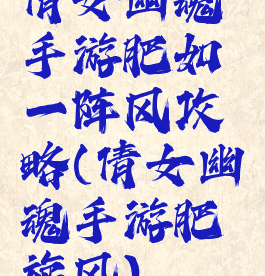 倩女幽魂
手游肥如
一阵风攻
略(倩女幽
魂手游肥
旋风)